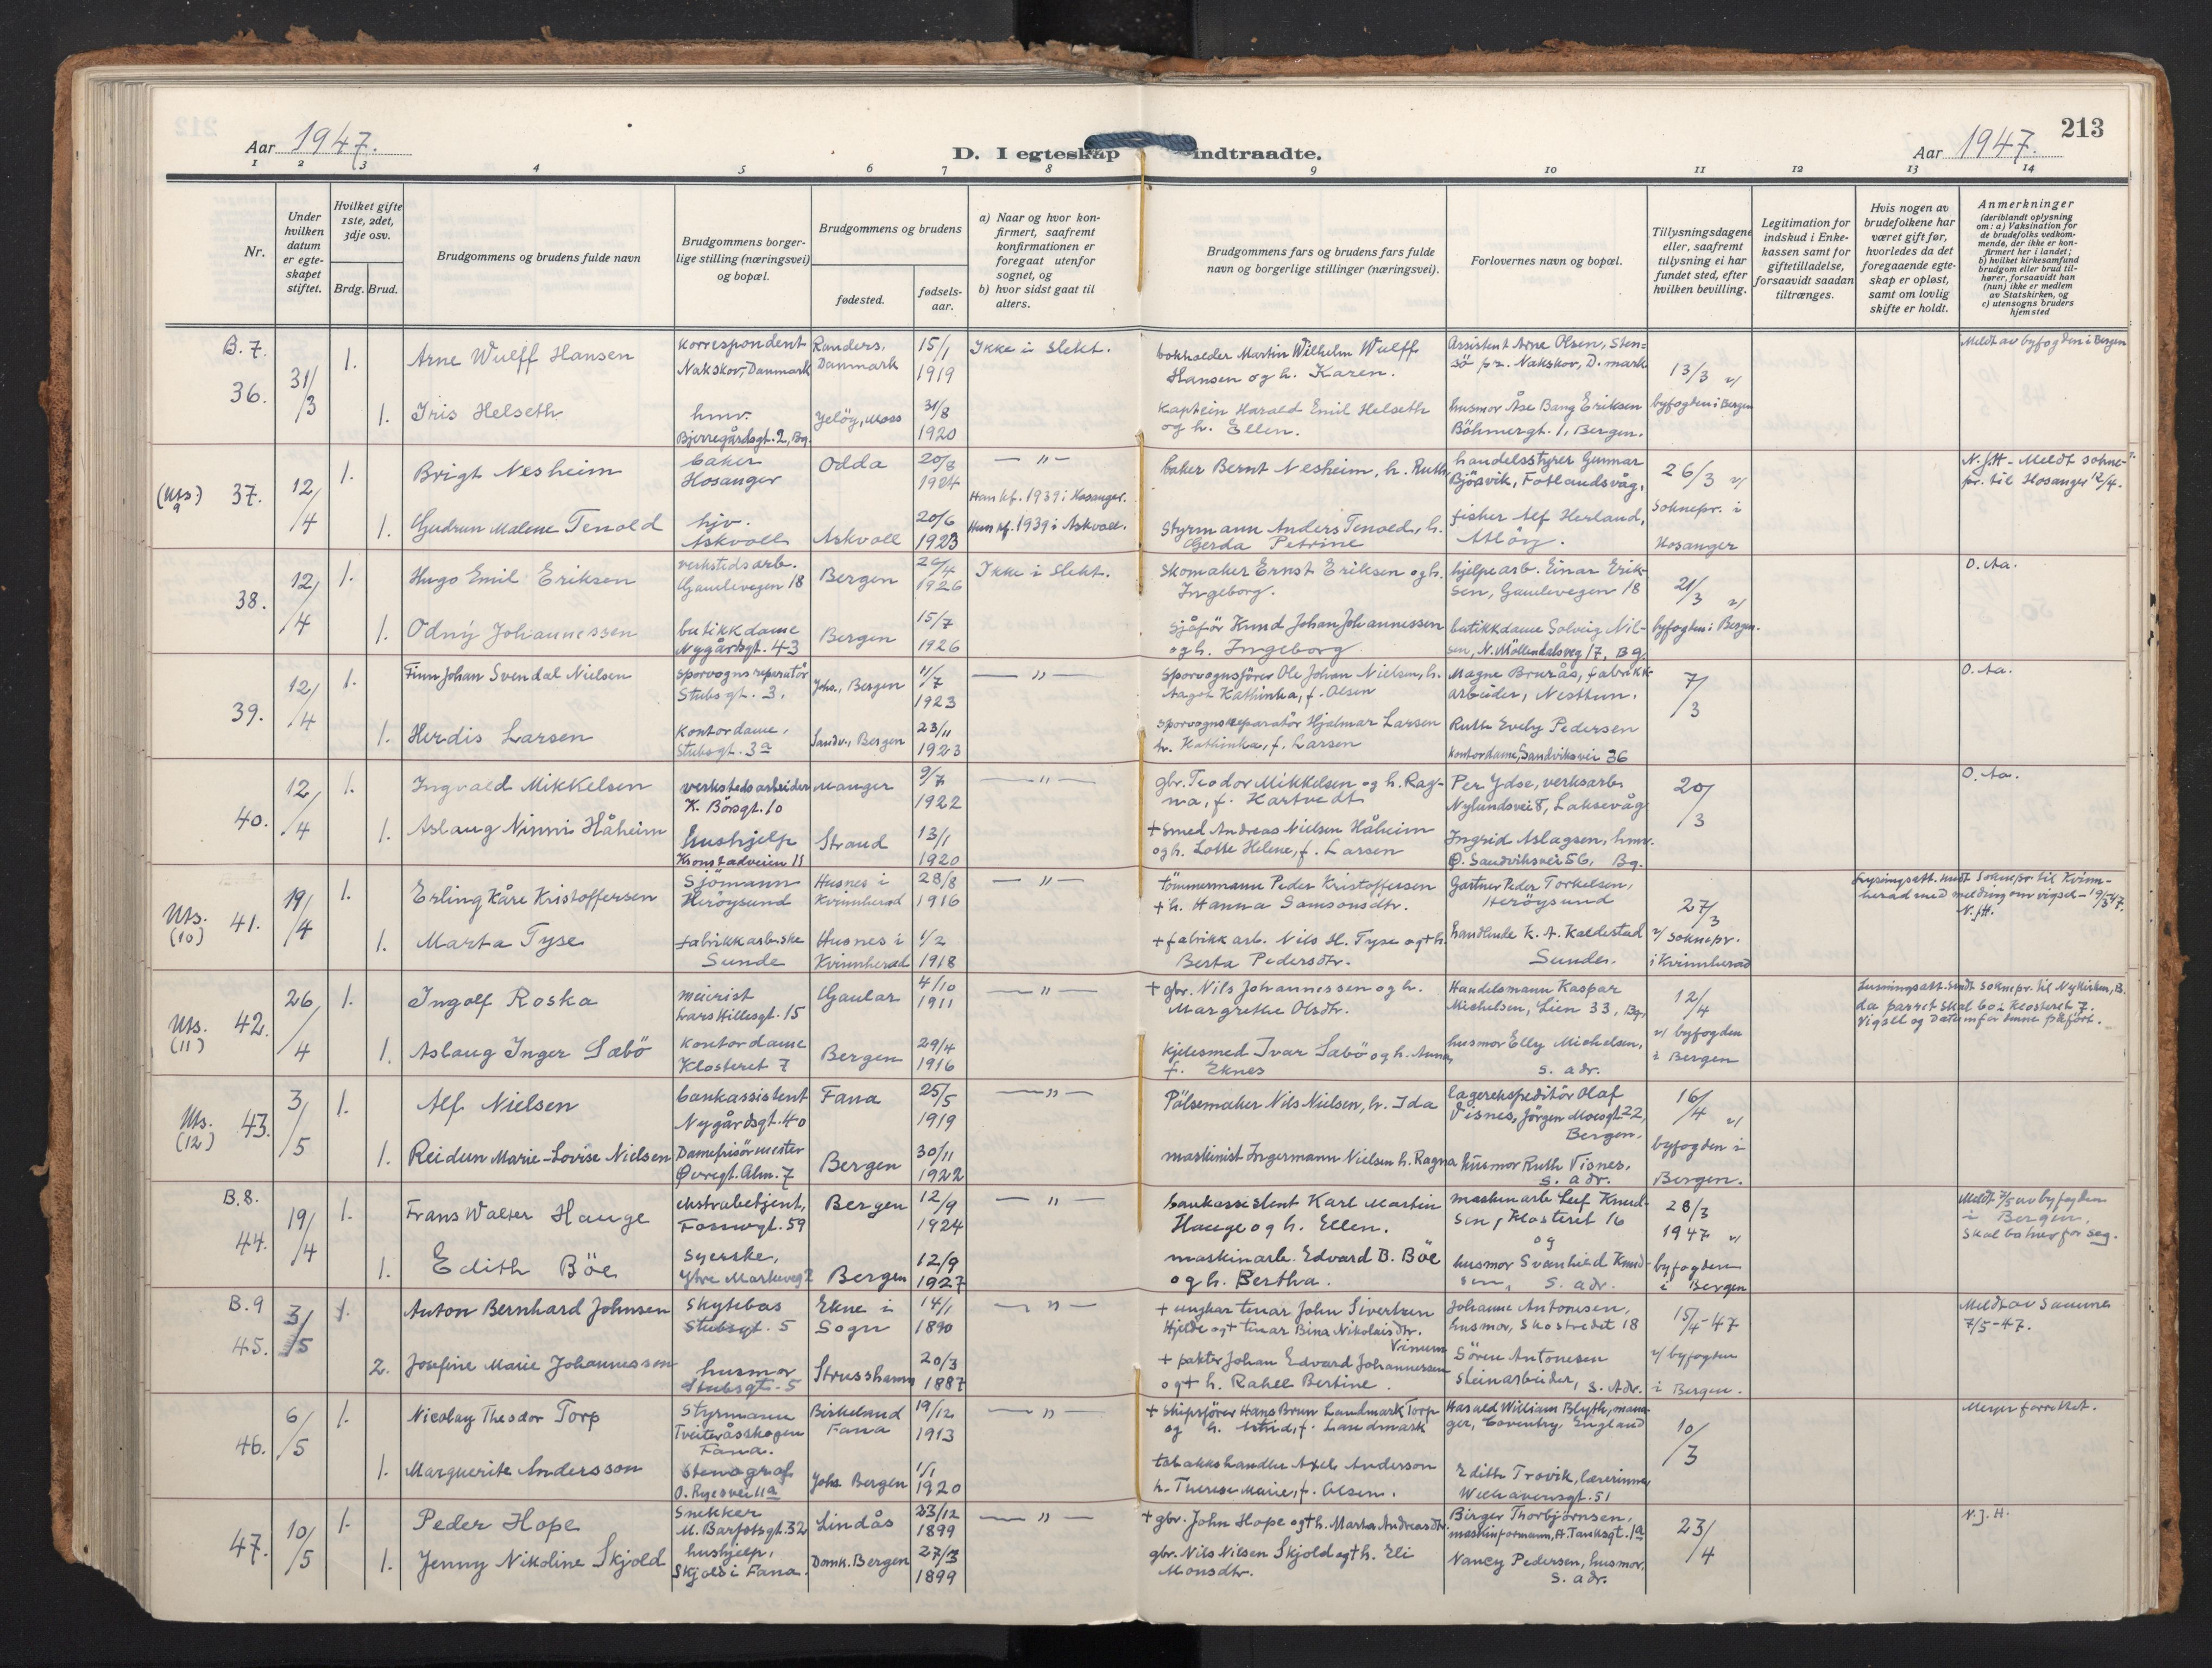 213
Aar 1947.
D. I egteskap indtraadte.
Aar 1947.
1 2 3 4 5 6 7 8 9 10 11 12 13 14
Nr.
Under hvilken datum er egteskapet stiftet.
Hvilket gifte 1ste, 2det, 3dje osv.
Brdg. Brud.
Brudgommens og brudens fulde navn
Brudgommens borgerlige stilling (næringsvei) og bopæl.
Brudgommens og brudens
fødested.
fødselsaar.
a) Naar og hvor konfirmert, saafremt konfirmationen er foregaat utenfor sognet, og
b) hvor sidst gaat til alters.
Brudgommens fars og brudens fars fulde navn og borgerlige stillinger (næringsvei).
Forlovernes navn og bopæl.
Tillysningsdagene eller, saafremt tillysning ei har fundet sted, efter hvilken bevilling.
Legitimation for indskud i Enkekassen samt for giftetilladelse, forsaavidt saadan tiltrænges.
Hvis nogen av brudefolkene har været gift før, hvorledes da det foregaaende egteskap er opløst, samt om lovlig skifte er holdt.
Anmerkninger
(deriblandt oplysning om: a) Vaksination for de brudefolks vedkommende, der ikke er konfirmert her i landet;
b) hvilket kirkesamfund brudgom eller brud tilhører, forsaavidt han (hun) ikke er medlem av Statskirken, og
c) utensogns bruders hjemsted
B. 7.
36. 31/3 1. Arne Wulff Hansen korrespondent Nakskov, Danmark Randers, Danmark 15/1 1919 Ikke i slekt. bokholder Martin Wilhelm Wulff Hansen og h. Karen. Assistent Arne Olsen, Stensö pr. Nakskov, D.mark 13/3 v/ Meldt av byfogden i Bergen
1. Iris Helseth hmv. Bjerregårdsgt. 2, Bg. Jelöy, Moss 31/8 1920 Kaptein Harald Emil Helseth og h. Ellen. husmor Åse Bang Eriksen Böhmergt. 1, Bergen. byfogden i Bergen
(Uts. 9) 37. 12/4 1. Brigt Nesheim baker Hosanger Odda 20/8 1924 — " — Han kf. 1939 i Hosanger. baker Bernt Nesheim, h. Ruth handelsstyrer Gunnar Bjösvik, Fotlandsvåg. 26/3 v/ N.J.H - Meldt sokne-
pr. til Hosanger 12/4.
1. Gudrun Malene Tenold hjv. Askvoll Askvoll 20/6 1923 Hun kf. 1939 i Askvoll. Styrmann Anders Tenold, h. Gerda Petrine fisker Alf Herland, Atløy. Soknepr. i Hosanger
38. 12/4 1. Hugo Emil Eriksen verkstedsarb. Gamlevegen 18 Bergen 26/4 1926 Ikke i slekt. Skomaker Ernst Eriksen og h. Ingeborg. hjelpearb. Einar Eriksen, Gamlevegen 18 21/3 v/ O. Aa.
1. Odny Johannessen butikkdame Nygårdsgt. 43 Bergen 15/7 1926 Sjåför Knud Johan Johannessen og h. Ingeborg butikkdame Solveig Nilsen, N. Möllendalsveg 17, Bg. byfogden i Bergen.
39. 12/4 1. Finn Johan Svendal Nielsen Sporvognsreparatör Stubsgt. 3. Johs., Bergen 11/7 1923 — " — Sporvognsförer Ole Johan Nielsen, h. Aagot Kathinka, f. Olsen Magne Brurås, fabrikkarbeider, Nesttun. 7/3 O. Aa.
1. Herdis Larsen Kontordame, Stubsgt. 3a Sandv., Bergen 23/11 1923 Sporvognsreparatör Hjalmar Larsen h. Kathinka, f. Larsen Ruth Eveby Pedersen kontordame, Sandviksvei 36
40. 12/4 1. Ingvald Mikkelsen verkstedsarbeider K. Bösgt. 10 Manger 9/7 1922 — " — gbr. Teodor Mikkelsen og h. Ragna, f. Kartvedt Per Ydse, verksarb. Nylundsvei 8, Laksevåg 20/3 O. Aa.
1. Aslaug Ninni Håheim Hushjelp Kronstadveien 11 Strand 13/1 1920 + smed Andreas Nielsen Håheim og h. Lotte Helene, f. Larsen Ingrid Aslagsen, hmv. Ø. Sandviksvei 56, Bg.
Uts. (10) 41. 19/4 1. Erling Kåre Kristoffersen Sjömann Heröysund Husnes i Kvinnherad 28/8 1916 — " — tömmermann Peder Kristoffersen + h. Hanna Samsonsdtr. Gartner Peder Torkelsen, Heröysund 27/3 Lysingsatt. sendt Soknepr. til Kvinnherad med melding om vigsel - 19/5 47. N.J.H.
1. Marta Tyse fabrikkarb.ske Sunde Husnes i Kvinnherad 1/2 1918 + fabrikkarb. Nils H. Tyse og + h. Berta Pedersdtr. handlende K. A. Kaldestad Sunde. v/ Soknepr. i Kvinnherad
Uts. (11) 42. 26/4 1. Ingolf Roska meierist Lars Hillesgt. 15 Gaular 4/10 1911 — " — + gbr. Nils Johannessen og h. Margrethe Olsdtr. Handelsmann Kaspar Michelsen, Lien 33, Bg. 12/4 Lysningsatt. sendt Soknepr. til Nykirken, B. da parret skal bo i Klosteret 7. Vigsel og Datum for denne påfört.
1. Aslaug Inger Sæbö Kontordame Klosteret 7 Bergen 29/4 1916 kjelesmed Ivar Sæbö og h. Anna, f. Eknes husmor Elly Michelsen, s. adr. v/ byfogden i Bergen
Uts. (12) 43. 3/5 1. Alf Nielsen bankassistent Nygårdsgt. 40 Fana 25/5 1919 — " — Pölsemaker Nils Nielsen, h. Ida lagerekspeditör Olaf Visnes, Jörgen Moesgt. 22, Bergen. 16/4 v/
1. Reidun Marie-Lovise Nielsen Damefrisörmester Øvregt. Alm. 7 Bergen 30/11 1922 maskinist Ingermann Nielsen h. Ragna husmor Ruth Visnes. s. adr. byfogden i Bergen.
B. 8.
44. 19/4 1. Frans Walter Hauge ekstrabetjent, Fosswgt. 59 Bergen 12/9 1924 — " — bankassistent Karl Martin Hauge og h. Ellen. maskinarb. Leif Knudsen, Klosteret 16 og 28/3 1947 v/ Meldt 7/5 av byfogden i Bergen. Skal bo her for seg.
1. Edith Böe Syerske, Ytre Markeveg 2 Bergen 12/9 1927 maskinarb. Edvard B. Böe og h. Bertha. husmor Svanhild Knudsen, s. adr. byfogden i Bergen
B. 9
45. 3/5 1. Anton Bernhard Johnsen Skytebas Stubsgt. 5 Ekne i Sogn 14/1 1890 — " — + ungkar tenar John Sivertsen Hjelde og + tenar Bina Nikolaisdtr. Vinum Johanne Antonesen, husmor, Skostredet 18 15/4-47 Meldt av Samme 7/5-47.
2. Josefine Marie Johannessen husmor Stubsgt. 5 Strusshamn 20/3 1887 + pakter Johan Edvard Johannessen og + h. Rakel Bertine. Sören Antonesen Steinarbeider, s. Adr. v/ byfogden i Bergen.
46. 6/5 1. Nicolay Theodor Torp Styrmann Tveiteråsskogen Fana. Birkeland Fana 19/12 1913 — " — + Skipsförer Hans Brun Landmark Torp og h. Astrid, f. Landmark Harald William Blyth, manager, Coventry, England 10/3 Meyer forrettet.
1. Marguerite Andersson Stenograf O. Ryesvei 11a Johs. Bergen 1/1 1920 tobakkshandler Axel Anderson h. Therese Marie, f. Olsen. Edith Trovik, lærerinne, Welhavensgt. 51
47. 10/5 1. Peder Hope Snekker M. Barfotsgt. 32 Lindås 23/12 1899 — " — + gbr. John Hope og + h. Marta Andreasdtr. Birger Thorbjörnsen, maskinformann, A. Tanksgt. 1a 23/4 N. J. H.
1. Jenny Nikoline Skjold hushjelp, Skjold i Fana. Domk. Bergen 27/3 1899 gbr. Nils Nilsen Skjold og + h. Eli Monsdtr. Nancy Pedersen, husmor, s. adr.